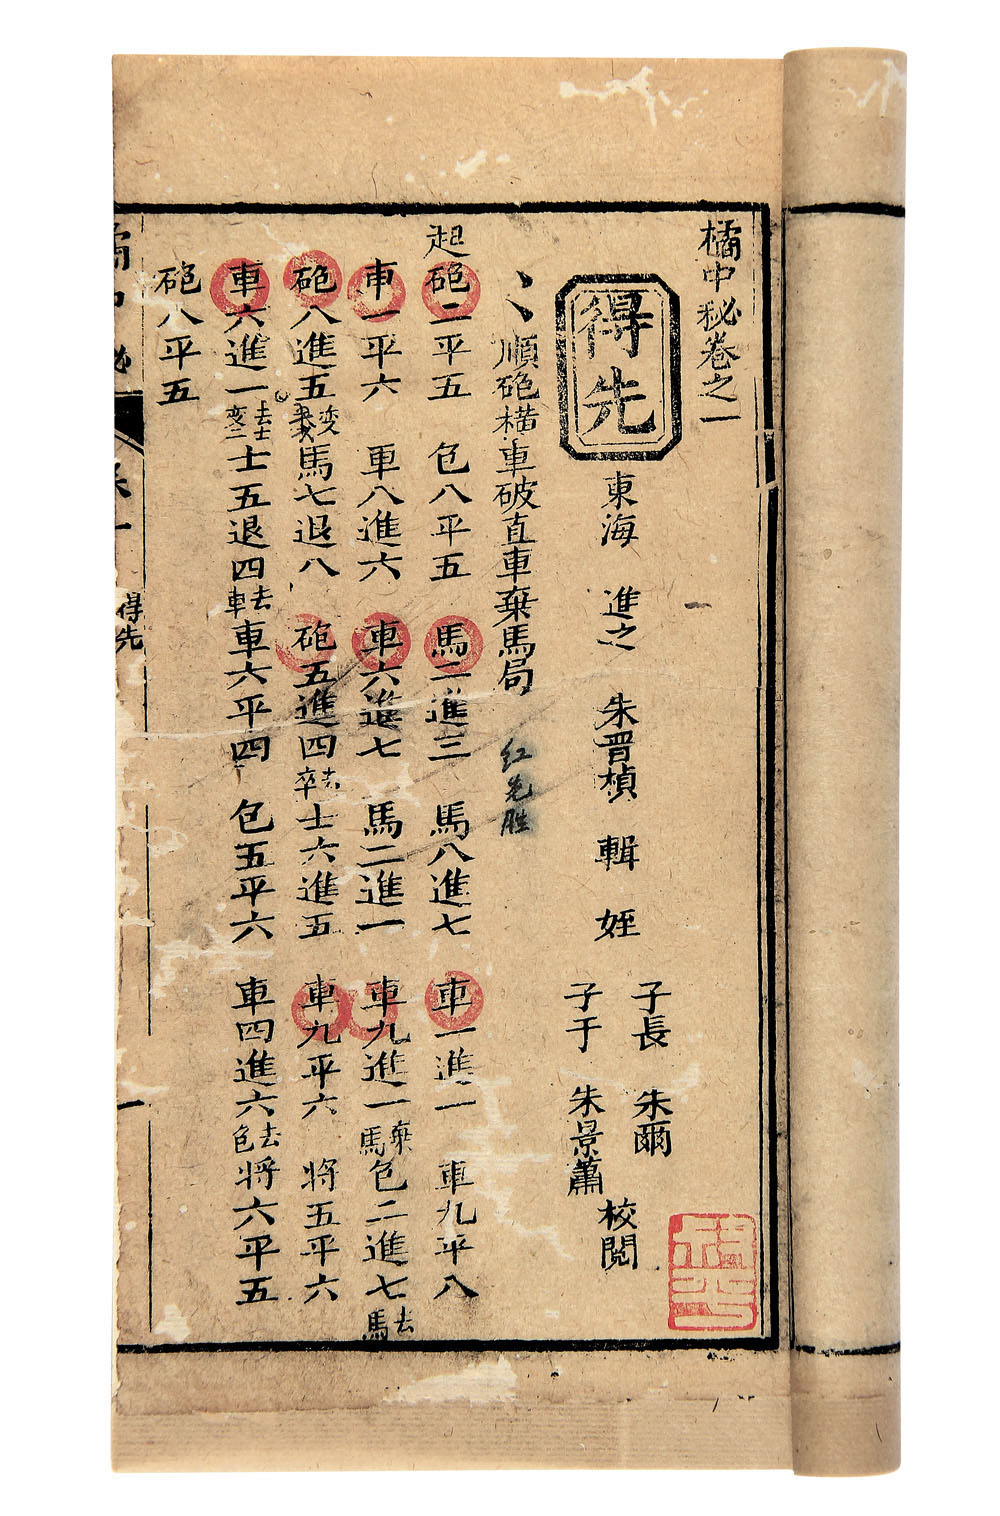 橘中秘卷之一
得先
東海 進之 朱晋楨 輯 姪
子長 朱爾
子于 朱景蕭
校閲
順砲橫車破直車棄馬局 红先胜
起砲二平五 包八平五 馬二進三 馬八進七 車一進一 車九平八
車一平六 車八進六 車六進七 馬二進一 車九進一棄馬 包二進七去馬
砲八進五 馬七退八 砲五進四去卒 士六進五 車九平六 将五平六
車六進一去士 士五退四去車 車六平四 包五平六 車四進六去包 将六平五
砲八平五
得先
一